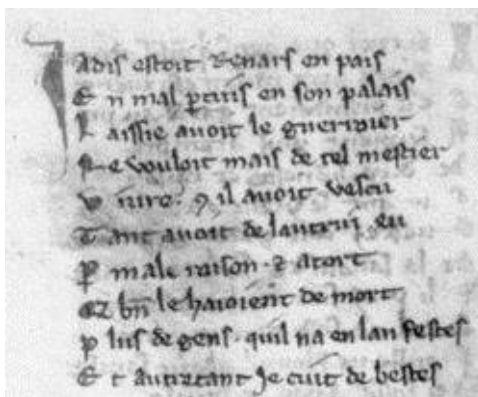 Jadis estoit Renars en pais
E n mal ꝑtuis en son palais
L aissie auoit le guerroier
N e vouloit mais de tel mestier
V iure · ꝯ il auoit vescu
T ant auoit de lautrui eu
ꝑ male raison · ⁊ a tort
Q̄ bn̄ le haioient de mort
P lus de gens · quil na en lan festes
E t autretant Je cuit de bestes